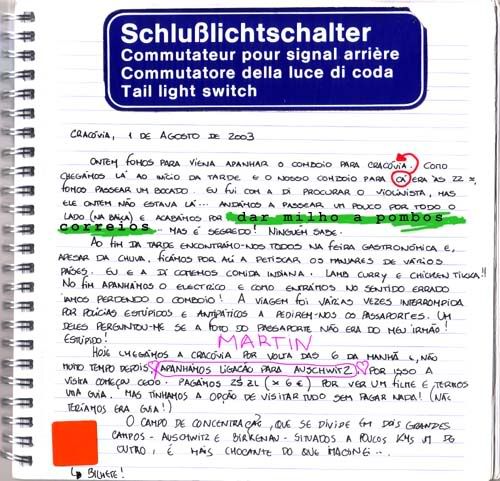 Schlußlichtschalter
Commutateur pour signal arrière
Commutatore della luce di coda
Tail light switch
CRACÓVIA, 1 DE AGOSTO DE 2003
ONTEM FOMOS PARA VIENA APANHAR O COMBOIO PARA CRACÓVIA. COMO
CHEGÁMOS LÁ AO INÍCIO DA TARDE E O NOSSO COMBOIO PARA CÁ ERA ÀS 22 H,
FOMOS PASSEAR UM BOCADO. EU FUI COM A DI PROCURAR O VIOLINISTA, MAS
ELE ONTEM NÃO ESTAVA LÁ... ANDÁMOS A PASSEAR UM POUCO POR TODO O
LADO (NA BAIXA) E ACABÁMOS POR dar milho a pombos
correios... MAS É SEGREDO! NINGUÉM SABE.
AO FIM DA TARDE ENCONTRÁMO-NOS TODOS NA FEIRA GASTRONÓMICA E,
APESAR DA CHUVA, FICÁMOS POR ALI A PETISCAR OS MANJARES DE VÁRIOS
PAÍSES. EU E A DI COMEMOS COMIDA INDIANA. LAMB CURRY E CHICKEN TIKKA!!
NO FIM APANHÁMOS O ELECTRICO E COMO ENTRÁMOS NO SENTIDO ERRADO
IAMOS PERDENDO O COMBOIO! A VIAGEM FOI VÁRIAS VEZES INTERROMPIDA
POR POLÍCIAS ESTÚPIDOS E ANTIPÁTICOS A PEDIREM-NOS OS PASSAPORTES. UM
DELES PERGUNTOU-ME SE A FOTO DO PASSAPORTE NÃO ERA DO MEU IRMÃO!
ESTÚPIDO! MARTIN
HOJE CHEGÁMOS A CRACÓVIA POR VOLTA DAS 6 DA MANHÃ E, NÃO
MUITO TEMPO DEPOIS, APANHÁMOS LIGAÇÃO PARA AUSCHWITZ POR ISSO A
VISITA COMEÇOU CEDO. PAGÁMOS 25 ZL (× 6 €) POR VER UM FILME E TERMOS
UMA GUIA. MAS TÍNHAMOS A OPÇÃO DE VISITAR TUDO SEM PAGAR NADA! (NÃO
TERÍAMOS ERA GUIA!)
O CAMPO DE CONCENTRAÇÃO, QUE SE DIVIDE EM DOIS GRANDES
CAMPOS - AUSCHWITZ E BIRKENAU - SITUADOS A POUCOS KMS UM DO
OUTRO, É MAIS CHOCANTE DO QUE IMAGINEI...
↳ BILHETE!